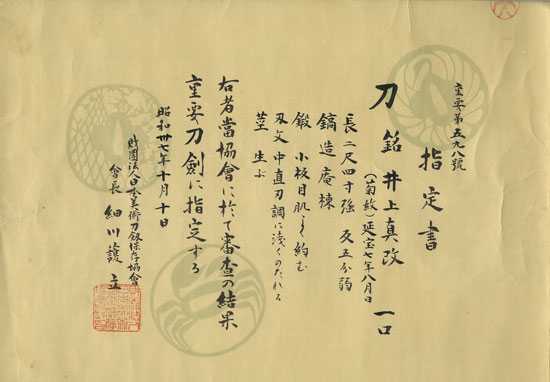 重要第五九八號
指定書
刀 銘 井上真改 一口
（菊紋）延宝七年八月日
長 二尺四寸強 反 五分弱
鎬造庵棟
鍛 小板目肌よく約む
刃文 中直刃調に浅くのたれる
茎 生ぶ
右者當協會に於て審査の結果
重要刀劍に指定する
昭和卅七年十月十日
財團法人日本美術刀剣保存協會
會長 細川護立